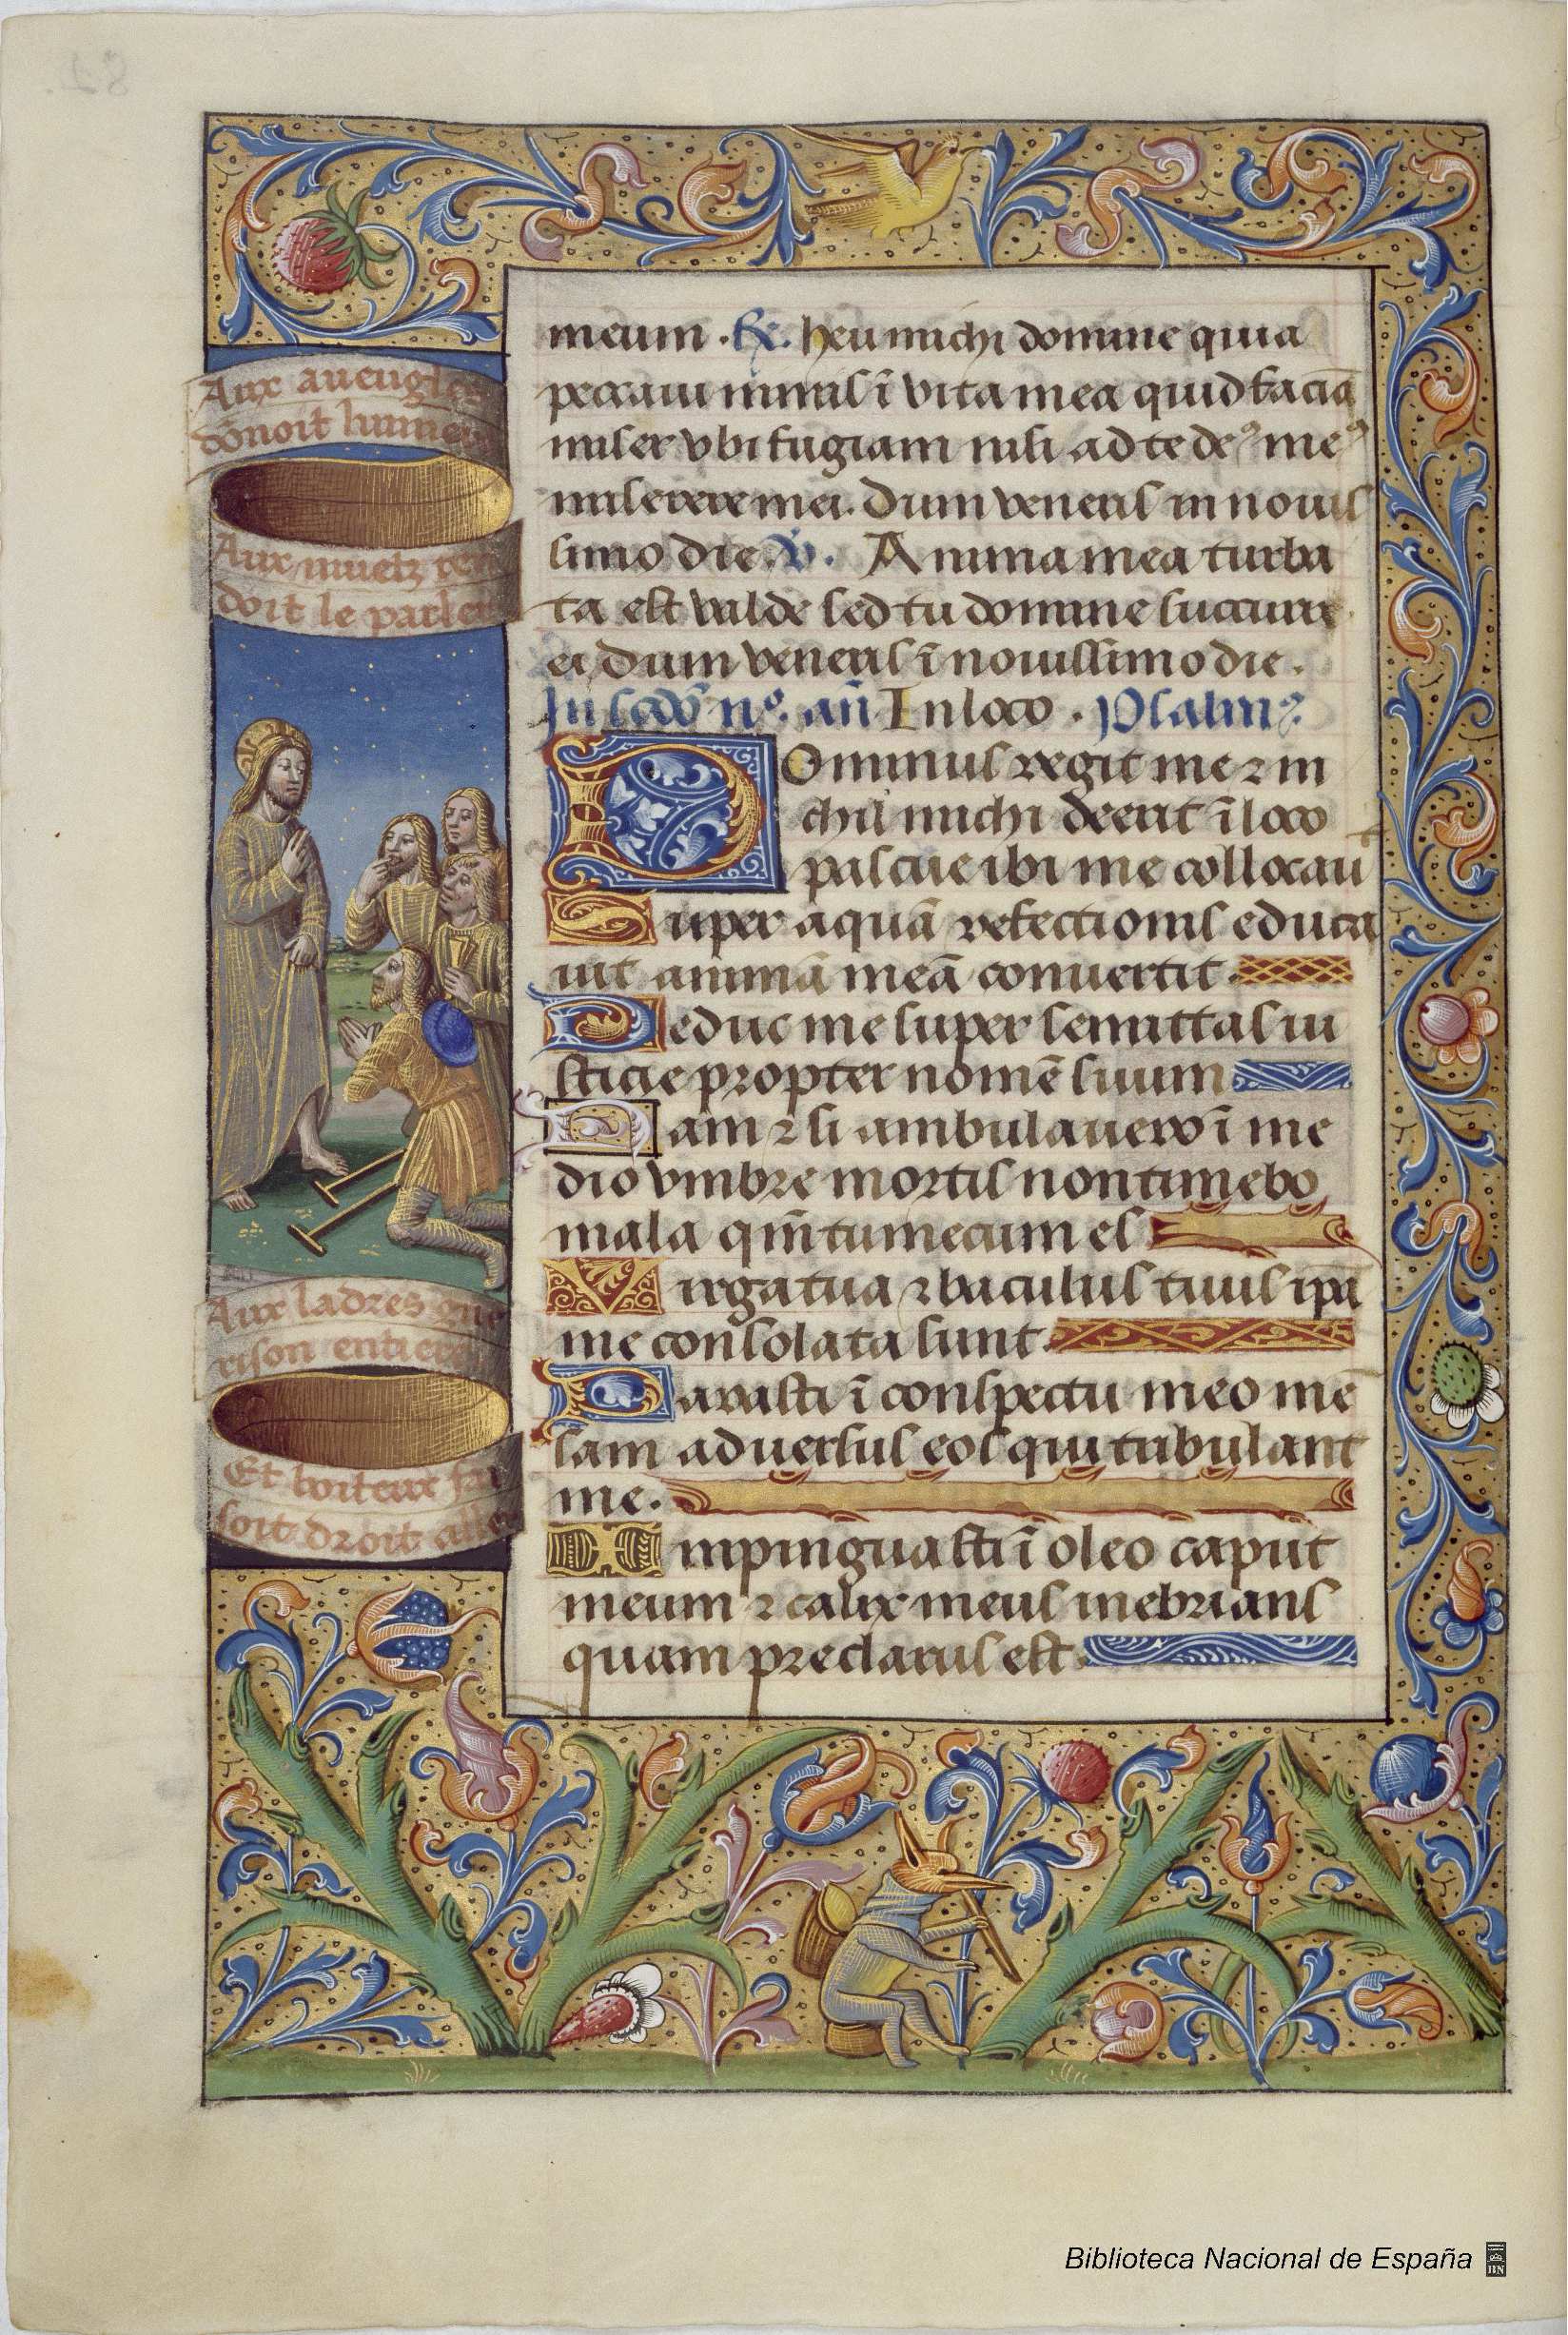 Aux aueugles
dōnoit lumiere
Aux muetz ren
doit le parler
Aux ladres gue
rison entiere
Et boiteux fai
soit droit aller
meum . R̃. heu michi domine quia
peccaui nimis ī vita mea quid faciā
miser vbi fugiam nisi ad te deꝰ meꝰ
miserere mei. Dum veneris in nouis
simo die. v̄. Anima mea turba
ta est valde sed tu domine succurre
ei, dum veneris ī nouissimo die .
añ In loco . Psalmꝰ.
Dominus regit me ⁊ ni
chil michi deerit ī loco
pascue ibi me collocauit
Super aquā refectionis educa
uit animā meā conuertit.
Deduc me super semittas iu
sticie propter nomē suum
Nam ⁊ si ambulauero ī me
dio vmbre mortis non timebo
mala qm̄ tu mecum es
Virga tua ⁊ baculus tuus ipā
me consolata sunt.
Parasti ī conspectu meo mē
sam aduersus eos qui tribulant
me.
Inpinguasti ī oleo caput
meum ⁊ calix meus inebrians
quam preclarus est.
Biblioteca Nacional de España